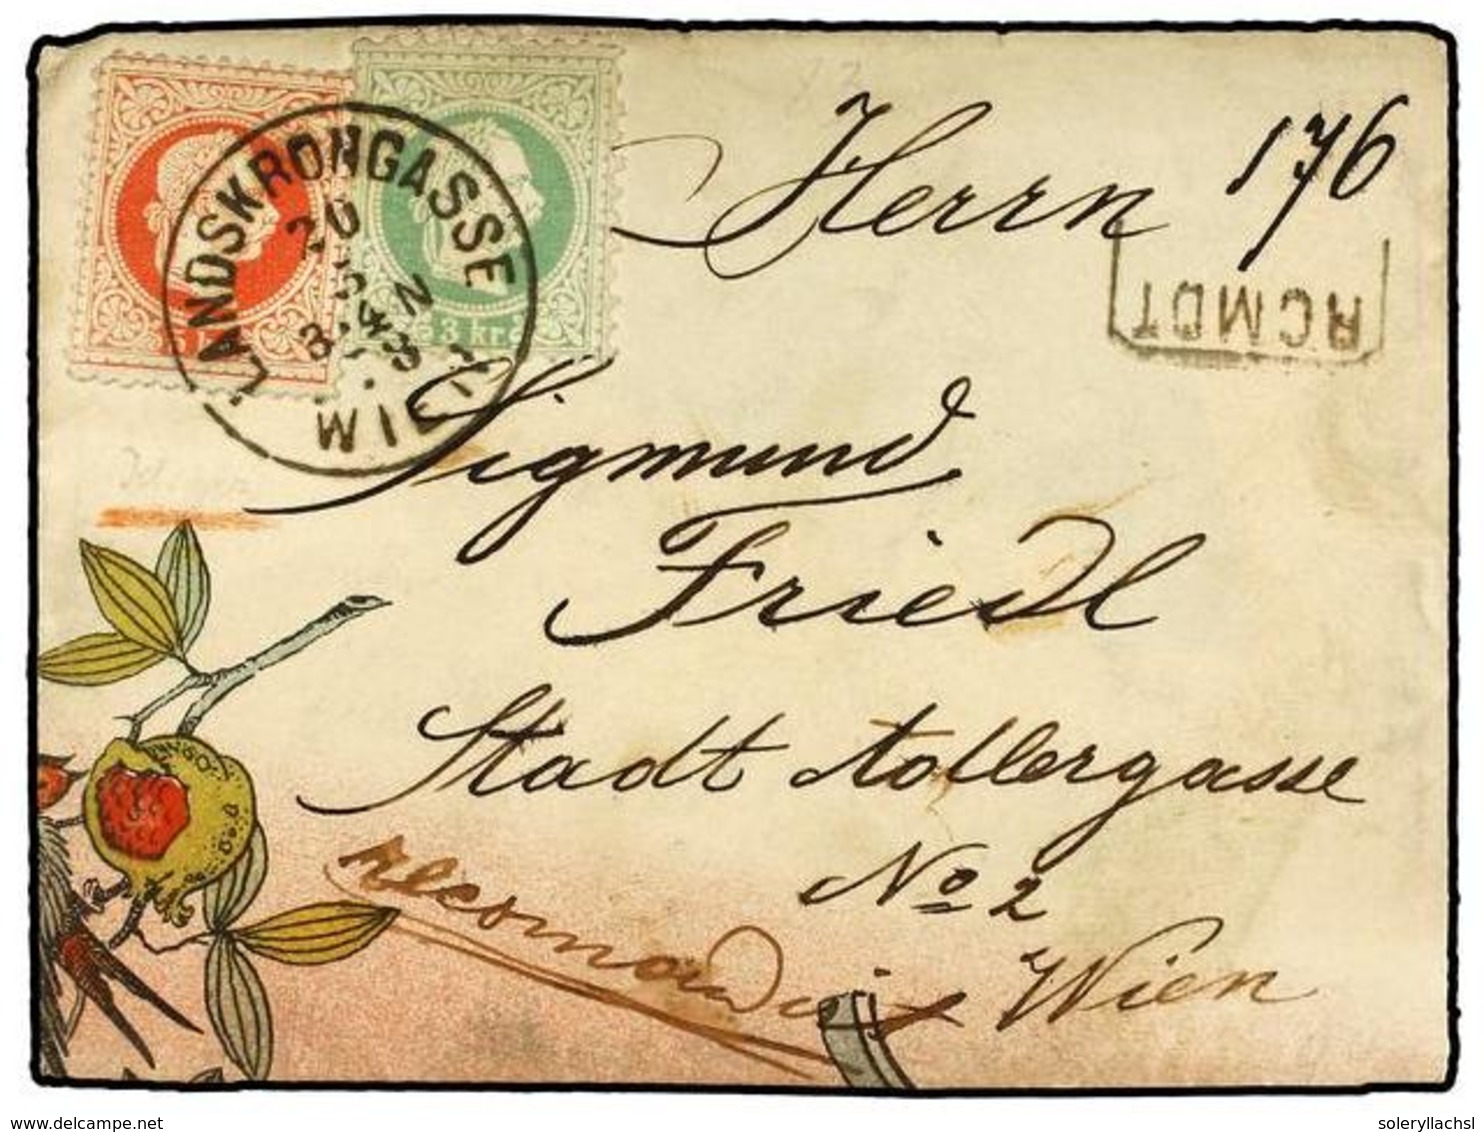 Herrn 176
RCMDT
LANDSKRONGASSE
20
5
3-4 N
WIEN
3 kr
Sigmund
Friedl
Stadt
No 2
Wien
delcampe.net
soleryllachsl